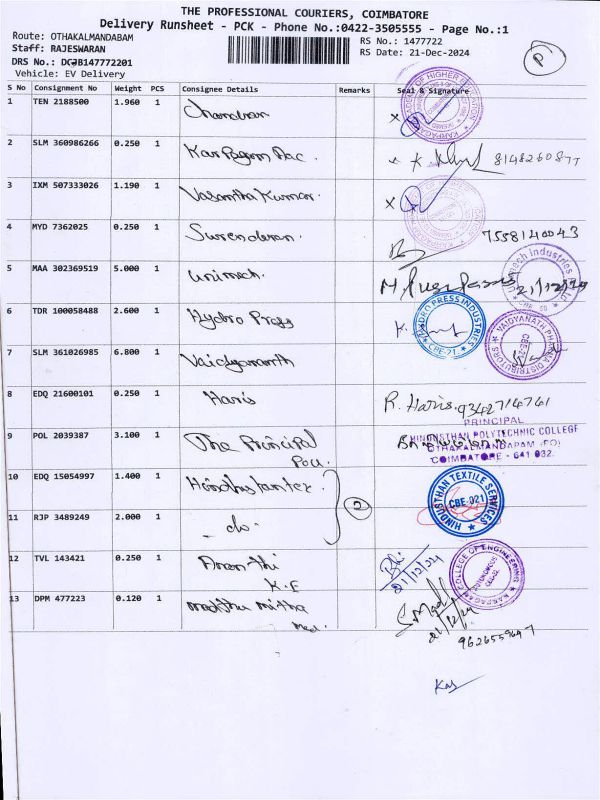 THE PROFESSIONAL COURIERS, COIMBATORE
Delivery Runsheet - PCK - Phone No.:0422-3505555 - Page No.:1
Route: OTHAKALMANDABAM RS No.: 1477722
Staff: RAJESWARAN RS Date: 21-Dec-2024
DRS No.: DCJB147772201
Vehicle: EV Delivery
P
S No Consignment No Weight PCS Consignee Details Remarks Seal & Signature
1 TEN 2188500 1.960 1 Chandran
2 SLM 360986266 0.250 1 Karpagam Aac.
3 IXM 507333026 1.190 1 Vasantha Kumar.
4 MYD 7362025 0.250 1 Surenderan. 7558140043
5 MAA 302369519 5.000 1 Unimech. 21/12/24
6 TDR 100058488 2.600 1 Hydro Press HYDRO PRESS INDUSTRIES CBE-21.
7 SLM 361026985 6.800 1 Vaidyananth VAIDYANATH PHARMA DISTRIBUTORS CBE-21
8 EDQ 21600101 0.250 1 Haris R. Haris. 9342714741
9 POL 2039387 3.100 1 The Principal
PRINCIPAL
HINDUSTHAN POLYTECHNIC COLLEGE
OTHAKALMANDAPAM (PO)
COIMBATORE - 641 032.
10 EDQ 15054997 1.400 1
2 HINDUSTHAN TEXTILE SERVICES CBE-021
11 RJP 3489249 2.000 1 - do -
12 TVL 143421 0.250 1 Anan thi
K.E
21/12/24
COLLEGE OF ENGINEERING
13 DPM 477223 0.120 1 Madhu mitha
Med.
21/12/24
9626559647